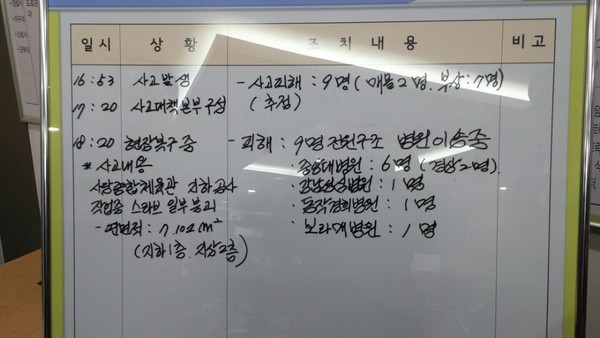 일시 상황 조치내용 비고
16:53 사고발생 - 사고피해 : 9명 (매몰2명, 부상:7명)
17:20 사고대책본부구성 (추정)
18:20 현장복구중 - 피해 : 9명 전원구조 병원이송중
* 사고내용 · 중앙대병원 : 6명 (경상2명).
사당종합체육관 지하공사 · 강남성심병원 : 1명
작업중 스라브 일부붕괴 · 동작경희병원 : 1명
- 연면적 : 7.102m² · 보라매병원 : 1명
(지하1층, 지상2층)